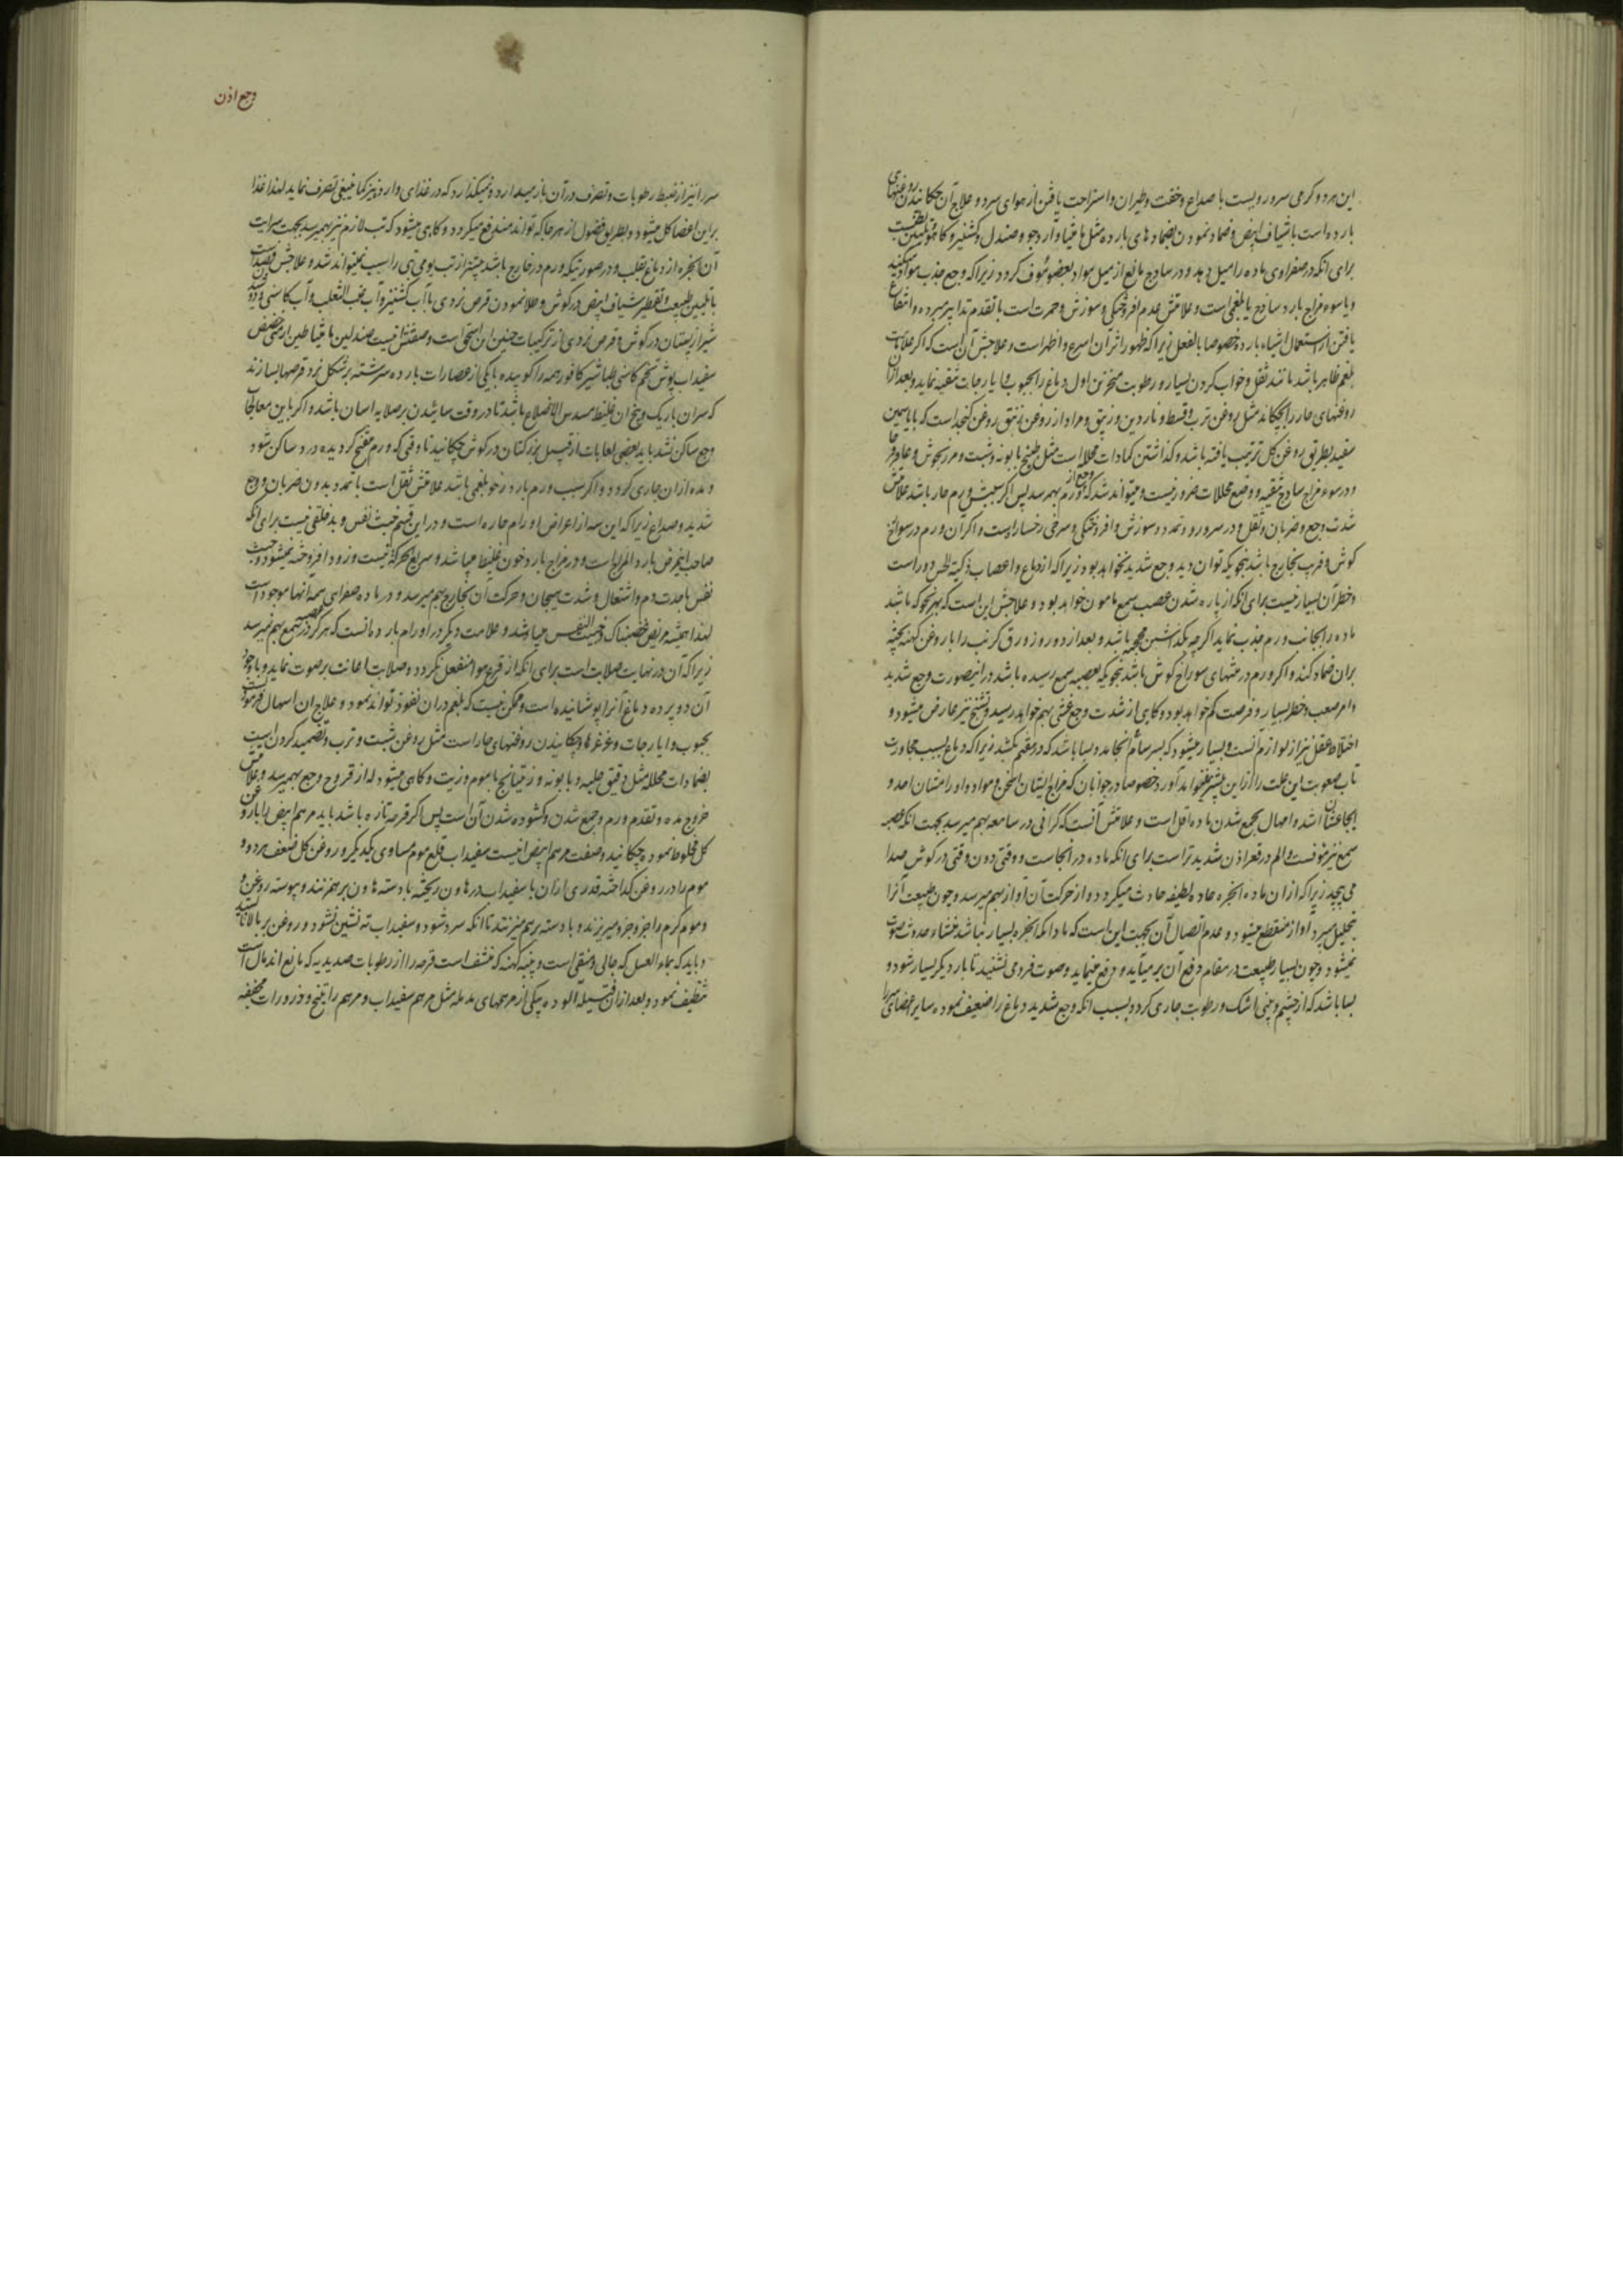 این هر دو گرمی سر و رویست با صداع و خفت و طیران و استراحت یافتن از هوای سرد و علاج آن چکانیدن روغنهای
بارده است با شیاف ابیض و ضماد نمودن بضمادهای بارده مثل مامیثا و آرد جو و صندل و کشنیز و کاهو و تلیین طبیعت
برای آنکه در صفراوی ماده را میل دهد و در ساذج مانع از میل مواد بعضو مئوف گردد زیرا که وجع جذب مواد میکند
و یا سوء مزاج بارد ساذج یا بلغمی است و علامتش عدم افروختگی و سوزش و حمرت است با تقدم تدابیر مبرده و انتفاع
یافتن از استعمال اشیاء بارده خصوصا بالفعل زیرا که ظهور اثر آن اسرع و اظهر است و علاجش آن است که اگر علامات
بلغم ظاهر باشد مانند ثقل و خواب کردن بسیار و رطوبت منخرین اول دماغ را بحبوب و ایارجات تنقیه نماید و بعد از آن
روغنهای حار را بچکاند مثل روغن ترب و قسط و ناردین و زیبق و مراد از روغن زنبق روغن کنجد است که با یاسمین
سفید بطریق روغن گل ترتیب یافته باشد و گذاشتن کمادات محلله است مثل طبیخ بابونه و شبت و مرزنجوش و عاقرقرحا
و در سوء مزاج ساذج تنقیه و وضع محللات ضرور نیست و میتواند شد که وجع از ورم بهم رسد پس اگر سببش ورم حار باشد علامتش
شدت وجع و ضربان و ثقل و در سر و رو و تمدد و سوزش و افروختگی و سرخی رخسار است و اگر آن ورم در سوراخ
گوش و قریب بخارج باشد بنحویکه توان دید وجع شدید نخواهد بود زیرا که از دماغ و اعصاب ذکیة الحس دور است
و خطر آن بسیار نیست برای آنکه از پاره شدن عصب سمع مامون خواهد بود و علاجش این است که بهر نحو که باشد
ماده را بجانب ورم جذب نماید اگرچه بگذاشتن محجمه باشد و بعد از دو روز ورق کرنب را با روغن کهنه پخته
بران ضماد کند و اگر ورم در منتهای سوراخ گوش باشد بنحویکه بعصبه سمع رسیده باشد در اینصورت وجع شدید
و امر صعب و خطر بسیار و فرصت کم خواهد بود و گاهی از شدت وجع غشی بهم خواهد رسید و تشنج نیز عارض میشود و
اختلاط عقل نیز از لوازم آنست و بسیار میشود که بسرسام انجامد و بسا باشد که در هفتم بکشد زیرا که دماغ بسبب مجاورت
تاب صعوبت این علت را ازین بیشتر نخواهد آورد خصوصا در جوانان که مزاج ایشان اسخن و مواد و اورام ایشان احد و
ایجاعشان اشد و امهال بجمع شدن ماده اقل است و علامتش آنست که گرانی در سامعه بهم میرسد بجهت آنکه عصبه
سمع نیز مئوفست و الم در قعر اذن شدیدتر است برای آنکه ماده در انجاست و وقتی دون وقتی در گوش صدا
می پیچد زیرا که از ان ماده ابخره حاده لطیفه حادث میگردد و از حرکت آن آواز بهم میرسد و چون طبیعت آنرا
تحلیل میبرد آواز منقطع میشود و عدم اتصال آن بجهت این است که مادامکه ابخره بسیار نباشد منشاء حدوث صوت
نمیشود و چون بسیار طبیعت در مقام دفع آن برمیآید و دفع مینماید و صوت فرو می نشنید تا بار دیگر بسیار شود و
بسا باشد که از چشم و بینی اشک و رطوبت جاری گردد بسبب آنکه وجع شدید دماغ را ضعیف نموده سایر اعضای سر را
وجع اذن
سر را نیز از ضبط رطوبات و تصرف در آن باز میدارد و نمیگذارد که در غذای وارد نیز کما ینبغی تصرف نماید لهذا غذا
بر این اعضا کل میشود و بطریق فضول از هر جا که تواند مندفع میگردد و گاهی میشود که تب لازم نیز بهمیرسد بجهت سرایت
آن ابخره از دماغ بقلب و در صورتیکه ورم در خارج باشد بیشتر از تب یومی تبی را سبب نمیتواند شد و علاجش فصدست
با تلیین طبیعت و تقطیر شیاف ابیض در گوش و طلا نمودن قرص نردی با آب کشنیز و آب عنب الثعلب و آب کاسنی و دوشیدن
شیر از پستان در گوش و قرص نردی از ترکیبات حنین ابن اسحق است و صفتش اینست صندلین مامیثا طین ارمنی حضض
سفیداب بوش تخم کاسنی طباشیر کافور همه را کوبیده با یکی از عصارات بارده سرشته بر شکل نرد قرصها بسازند
که سر ان باریک و بیخ ان غلیظ مسدس الاضلاع باشد تا در وقت سائیدن بر صلابه اسان باشد و اگر باین معالجات
وجع ساکن نشد باید بعضی لعابات از قبیل بزر کتان در گوش چکانید تا وقتی که ورم منفتح گردیده درد ساکن شود
و مده از ان جاری گردد و اگر سبب ورم بارد رخو بلغمی باشد علامتش ثقل است با تمدد بدون ضربان و وجع
شدید و صداع زیرا که این سه از اعراض اورام حاره است و در این قسم خبث نفس و بد خلقی نیست برای آنکه
صاحب اینمرض بارد المزاج است و در مزاج بارد خون غلیظ میباشد و سریع الحرکة نیست و زود افروخته نمیشود و خبث
نفس با حدت دم و اشتعال و شدت هیجان و حرکت آن بخارج بهم میرسد و در ماده صفراوی همه آنها موجود است
لهذا همیشه مریض غضبناک و خبیث النفس میباشد و علامت دیگر در اورام بارد مانست که هرگز در عصبه سمع بهم نمیرسد
زیرا که آن در نهایت صلابت است برای آنکه از قرع هوا منفعل نگردد و صلابت اعانت بر صوت نماید و با وجود
آن دو پرده دماغ آنرا پوشانیده است و ممکن نیست که بلغم در ان نفوذ تواند نمود و علاج ان اسهال فرمودنست
بحبوب و ایارجات و غرغرها و چکانیدن روغنهای حار است مثل روغن شبت و ترب و تضمید کردن است
بضمادات محلله مثل دقیق حلبه و بابونه و زیتیانج با موم و زیت و گاهی میشود که از قروح وجع بهمیرسد و علامتش
خروج مده و تقدم ورم و جمع شدن و گشوده شدن آن است پس اگر قرحه تازه باشد باید مرهم ابیض را با روغن
گل مخلوط نموده چکانید و صفت مرهم ابیض اینست سفیداب قلع موم مساوی یکدیگر و روغن گل ضعف هر دو و
موم را در روغن گداخته قدری از ان با سفیداب در هاون ریخته با دسته هاون بر هم زنند و پیوسته روغن و
و موم گرم را جزو جزو میریزند و با دسته بر هم میزنند تا آنکه سرد شود و سفیداب ته نشین نشود و روغن بر بالا نایستد
و باید که بماء العسل که جالی و منقی است و پنبه کهنه که منشف است قرحه را از رطوبات صدیدیه که مانع اندمال است
تنظیف نمود و بعد از ان فتیله آلوده بیکی از مرهمهای مدمله مثل مرهم سفیداب و مرهم راتینج و ذرورات مجففه